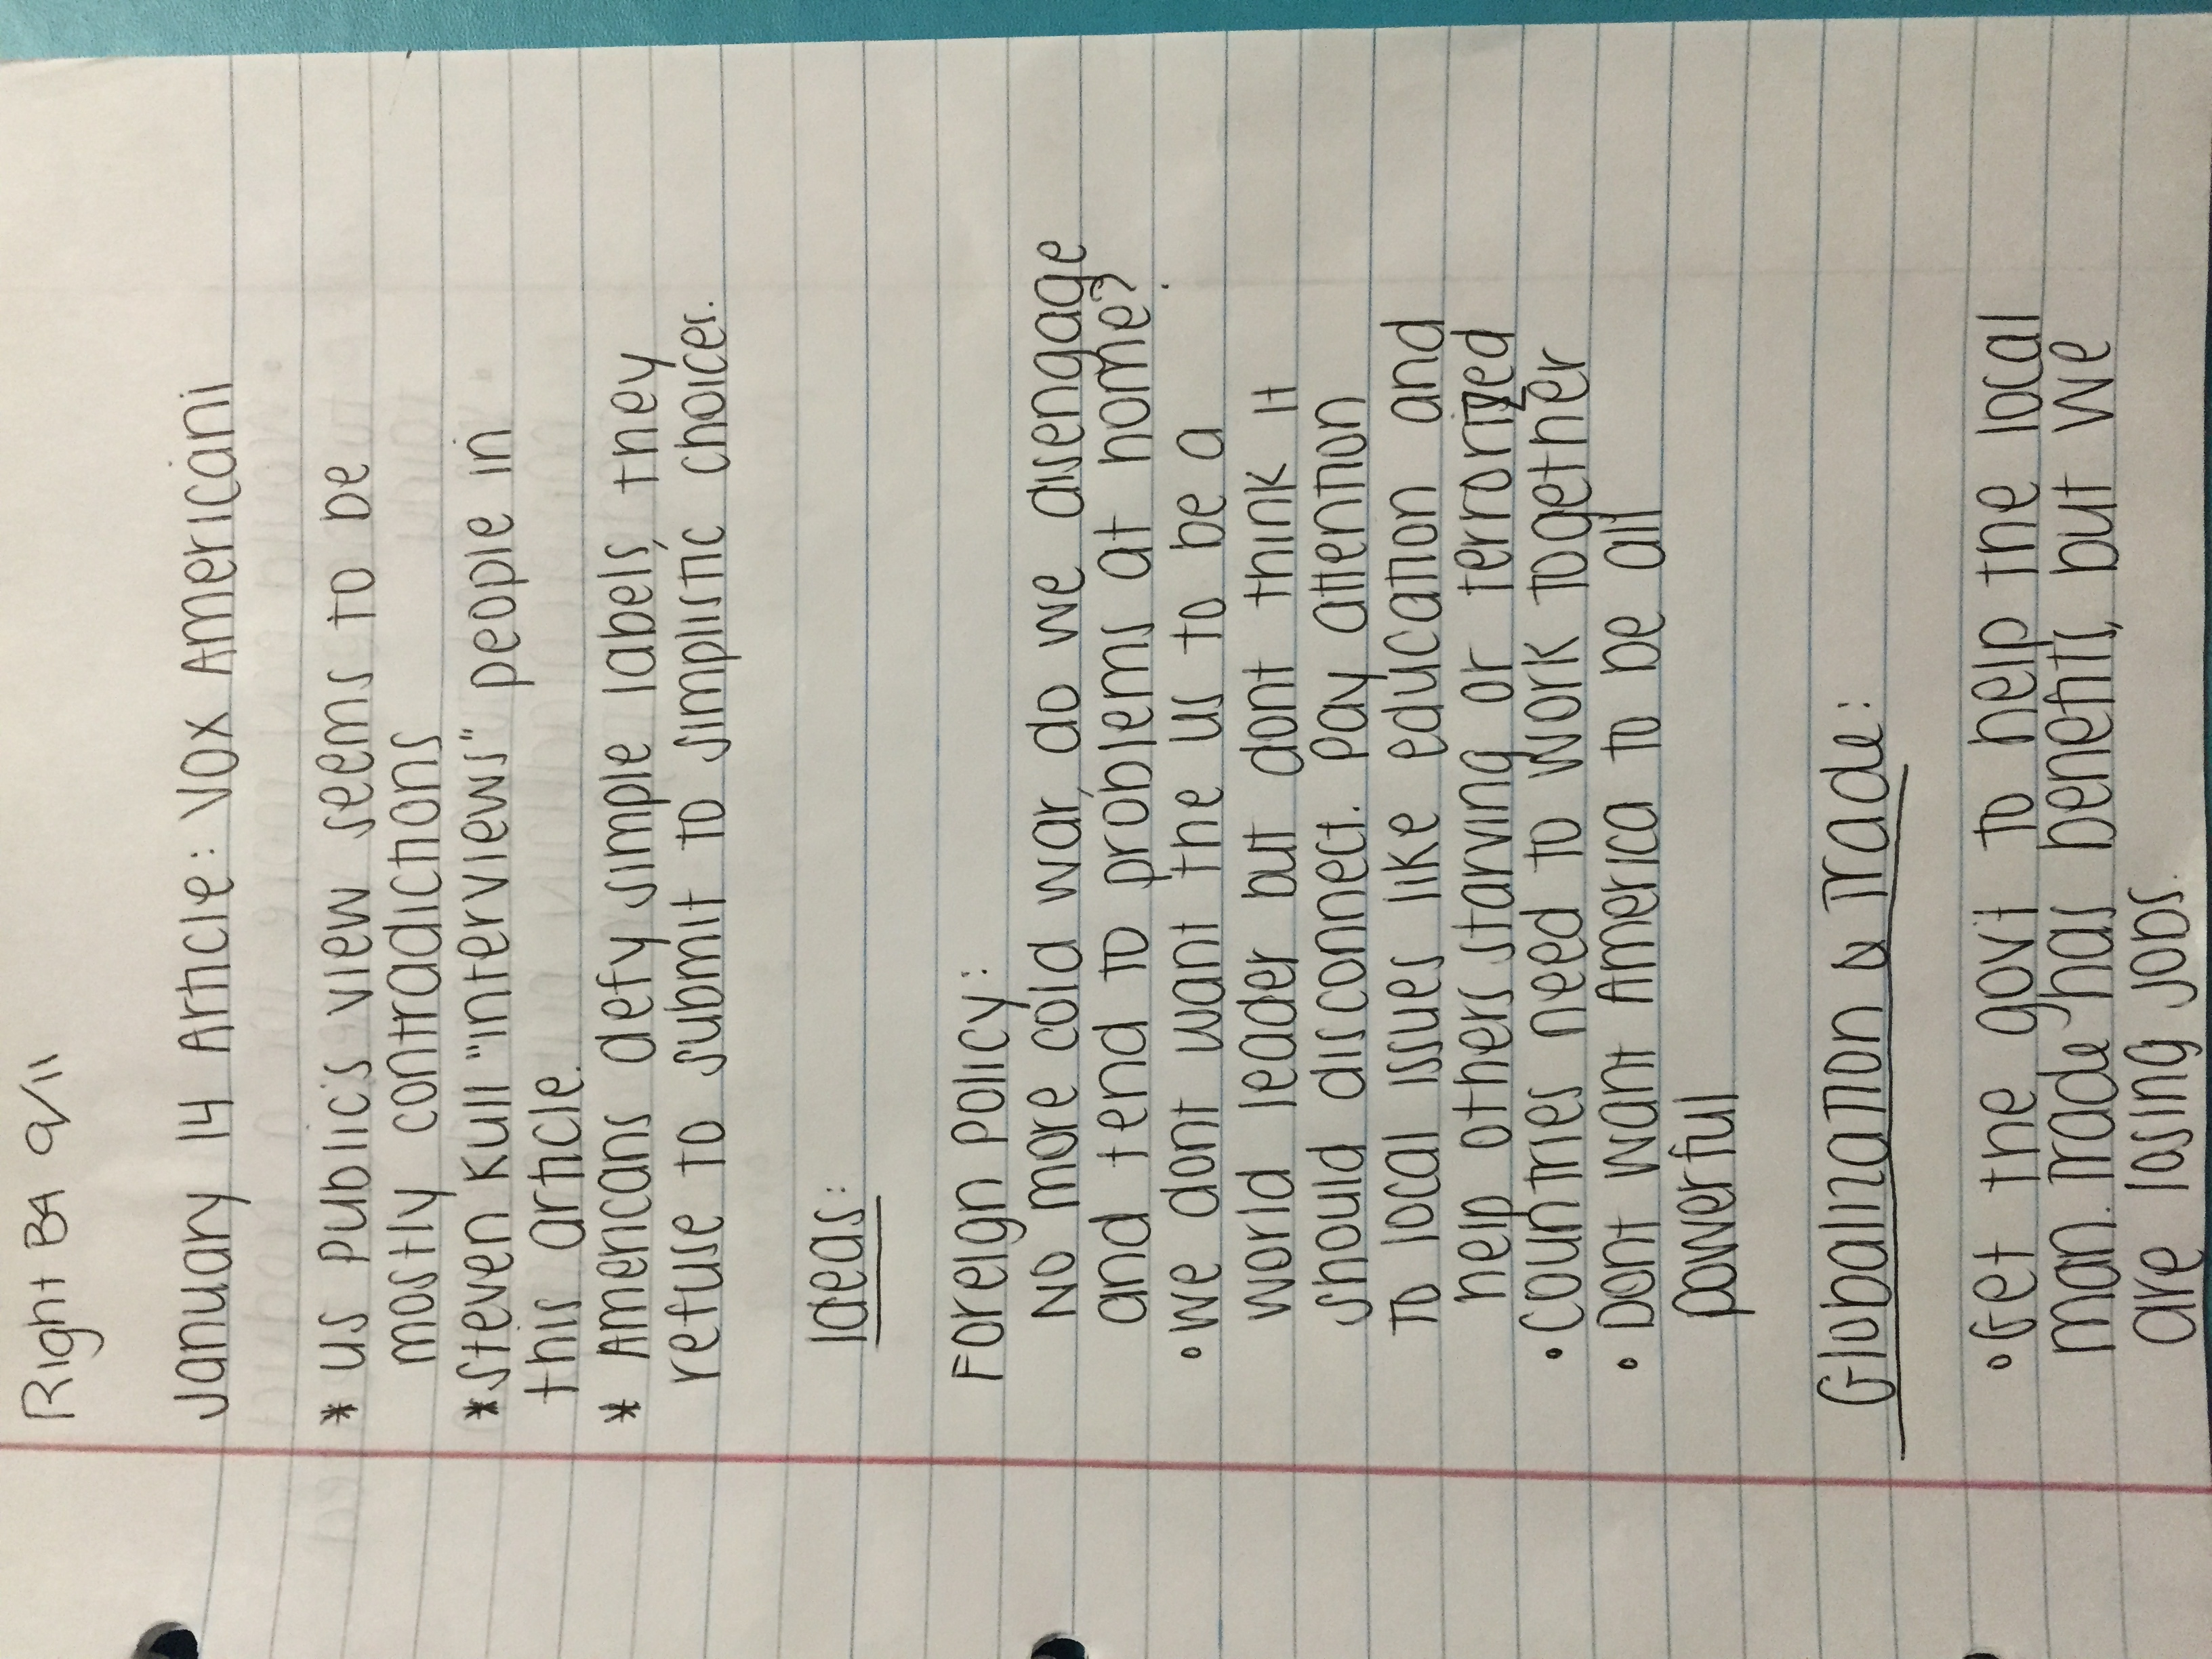 Right B4 9/11
January 14 Article: Vox Americani
* US Public's view seems to be
mostly contradictions
* Steven Kull "interviews" people in
this article.
* Americans defy simple labels, they
refuse to submit to simplistic choices.
Ideas:
Foreign Policy:
No more cold war, do we disengage
and tend to problems at home?
• We dont want the US to be a
world leader but dont think it
should disconnect. Pay attention
to local issues like education and
help others starving or terrorized
• Countries need to work together
• Dont want America to be all
powerful
Globalization & Trade:
• Get the gov't to help the local
man. Trade has benefits, but we
are losing jobs.